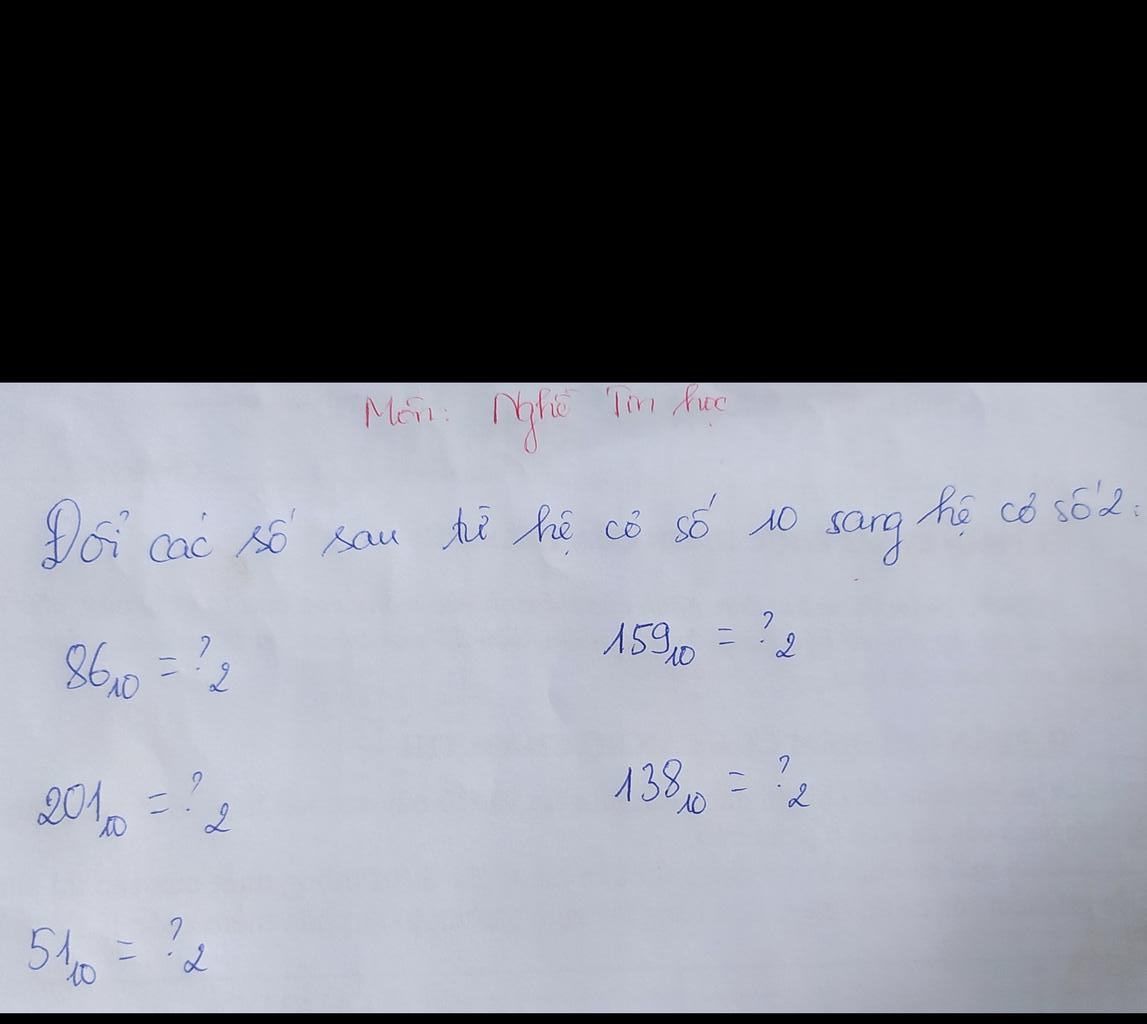 Môn: Nghề Tin học
Đổi các số sau từ hệ cơ số 10 sang hệ cơ số 2:
86₁₀ = ?₂
159₁₀ = ?₂
201₁₀ = ?₂
138₁₀ = ?₂
51₁₀ = ?₂